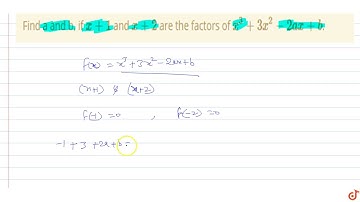 Find a and b, if x + 1 and x + 2 are the factors of x³ + 3x² − 2ax + b.
f(x) = x³ + 3x² − 2ax + b
(x+1) & (x+2)
f(-1) = 0 , f(-2) = 0
-1 + 3 + 2a + b =